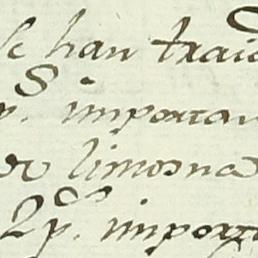 Se han traid
S
p. importan
er limosna
2 p. importa